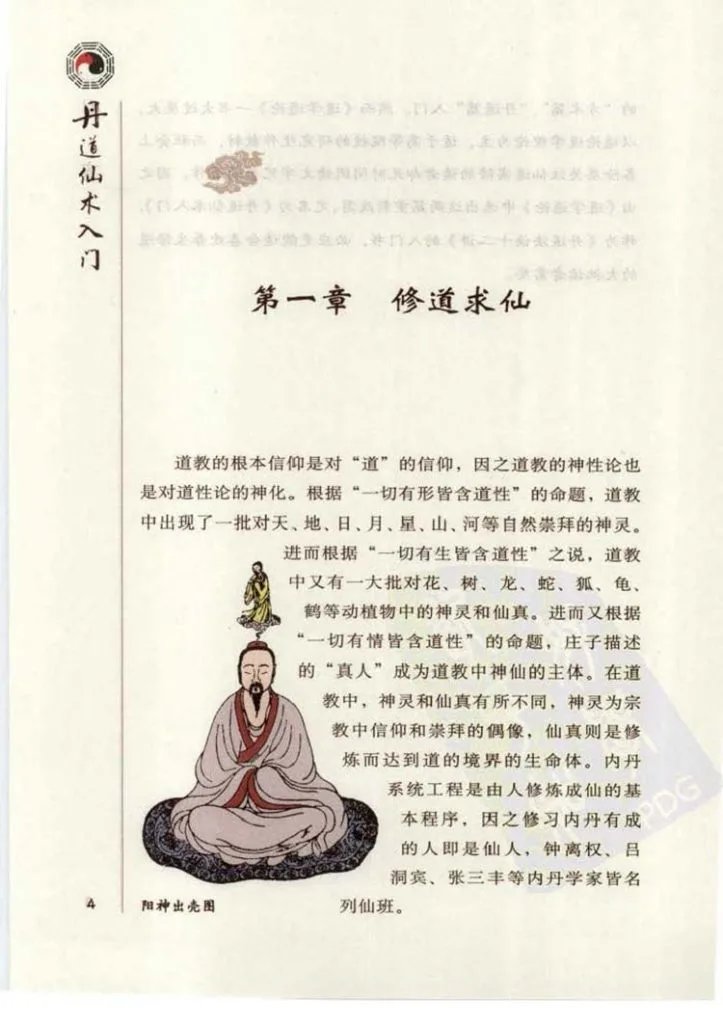 丹道仙术入门
第一章 修道求仙
道教的根本信仰是对“道”的信仰，因之道教的神性论也
是对道性论的神化。根据“一切有形皆含道性”的命题，道教
中出现了一批对天、地、日、月、星、山、河等自然崇拜的神灵。
进而根据“一切有生皆含道性”之说，道教
中又有一大批对花、树、龙、蛇、狐、龟、
鹤等动植物中的神灵和仙真。进而又根据
“一切有情皆含道性”的命题，庄子描述
的“真人”成为道教中神仙的主体。在道
教中，神灵和仙真有所不同，神灵为宗
教中信仰和崇拜的偶像，仙真则是修
炼而达到道的境界的生命体。内丹
系统工程是由人修炼成仙的基
本程序，因之修习内丹有成
的人即是仙人，钟离权、吕
洞宾、张三丰等内丹学家皆名
列仙班。
阳神出壳图
4
PDG